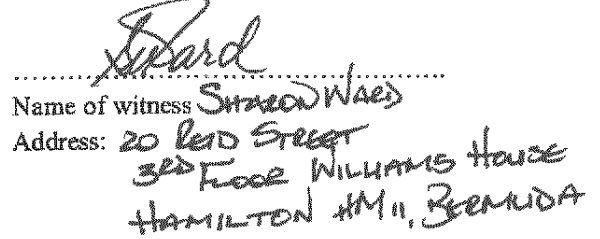 SWard
Name of witness SHARON WARD
Address: 20 REID STREET
3RD FLOOR WILLIAMS HOUSE
HAMILTON HM 11, BERMUDA